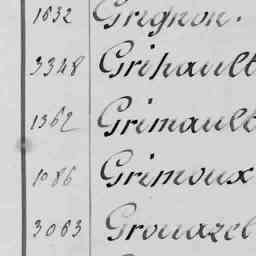 1632 Grignon.
3348 Grihault
1362 Grimault
1086 Grimoux
3063 Grouazel